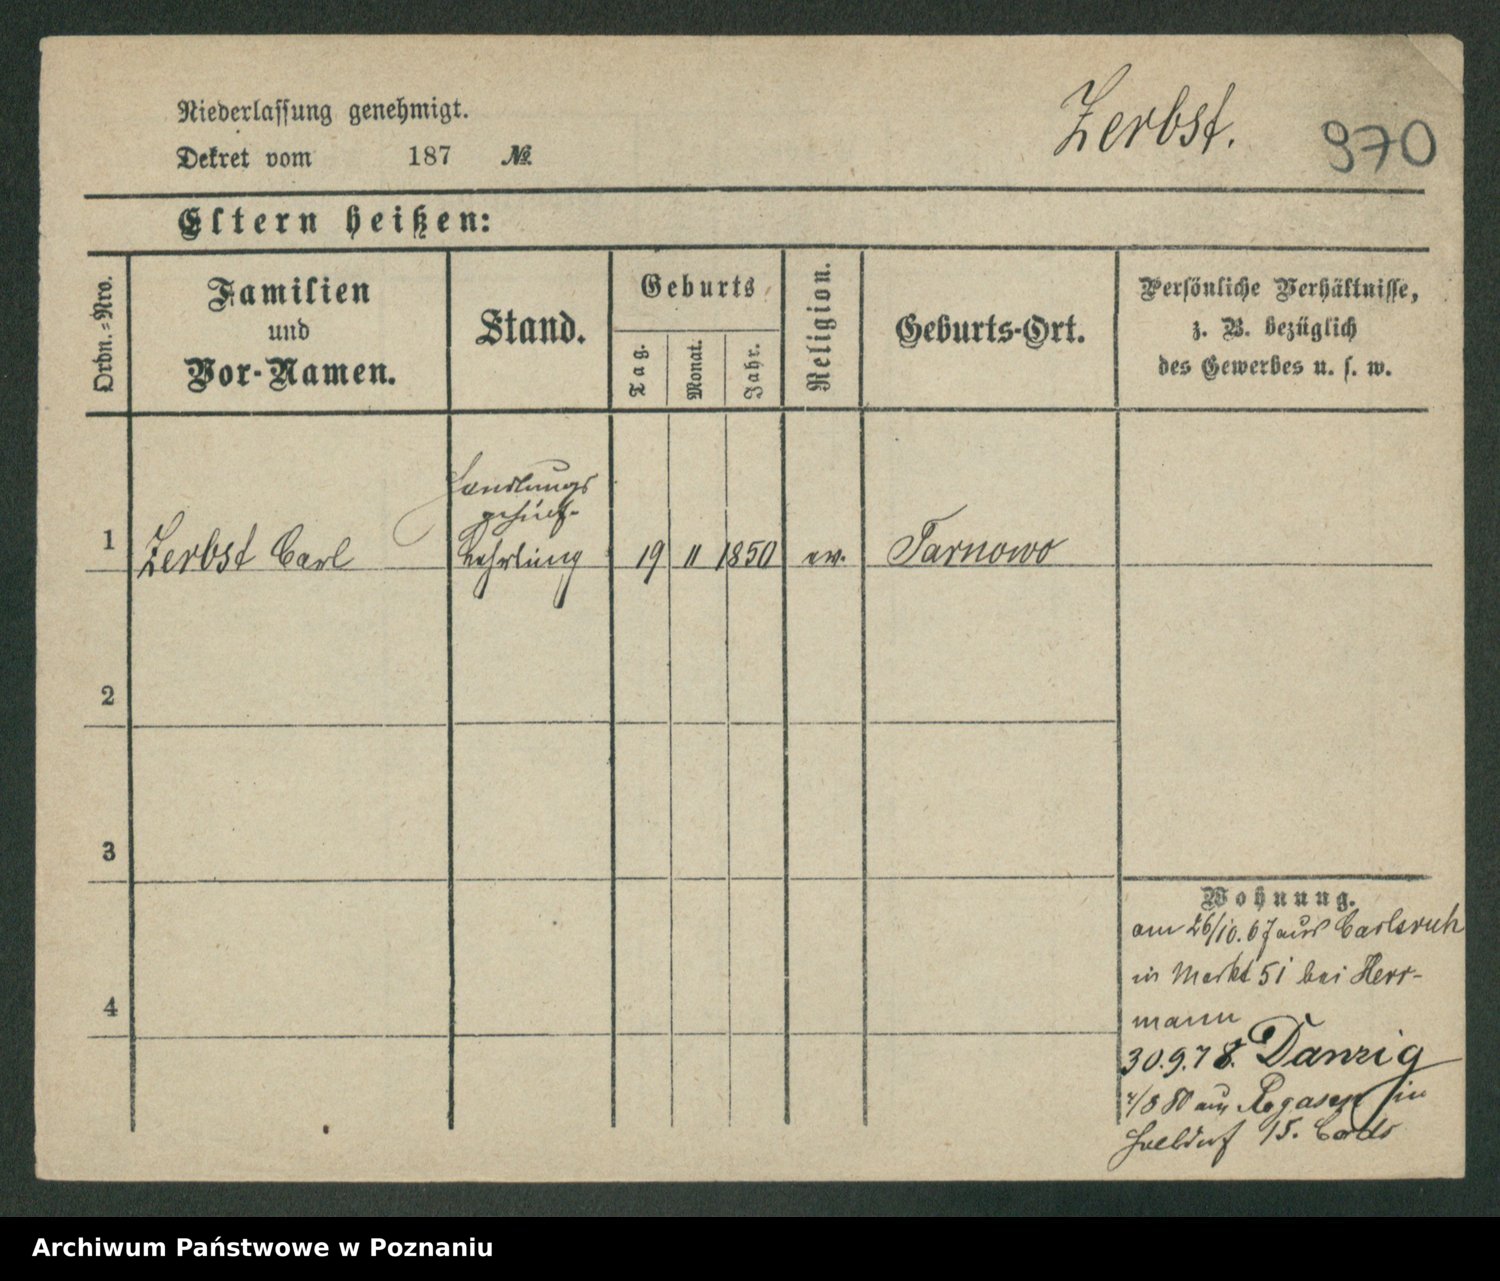 Niederlassung genehmigt.
Zerbst.
970
Dekret vom 187 №
Eltern heißen:
Ordn.-Nro.
Familien
und
Vor-Namen.
Stand.
Geburts
Tag.
Monat.
Jahr.
Religion.
Geburts-Ort.
Persönliche Verhältnisse,
z. B. bezüglich
des Gewerbes u. s. w.
Handlungs
1 Zerbst Carl Lehrling 19 11 1850 ev. Tarnowo
2
3
4
Wohnung.
am 26/10. 67 aus Carlsruh
in Markt 51 bei Herr-
mann
30.9.78. Danzig
/8 80 aus Rogasen in
15.
Archiwum Państwowe w Poznaniu